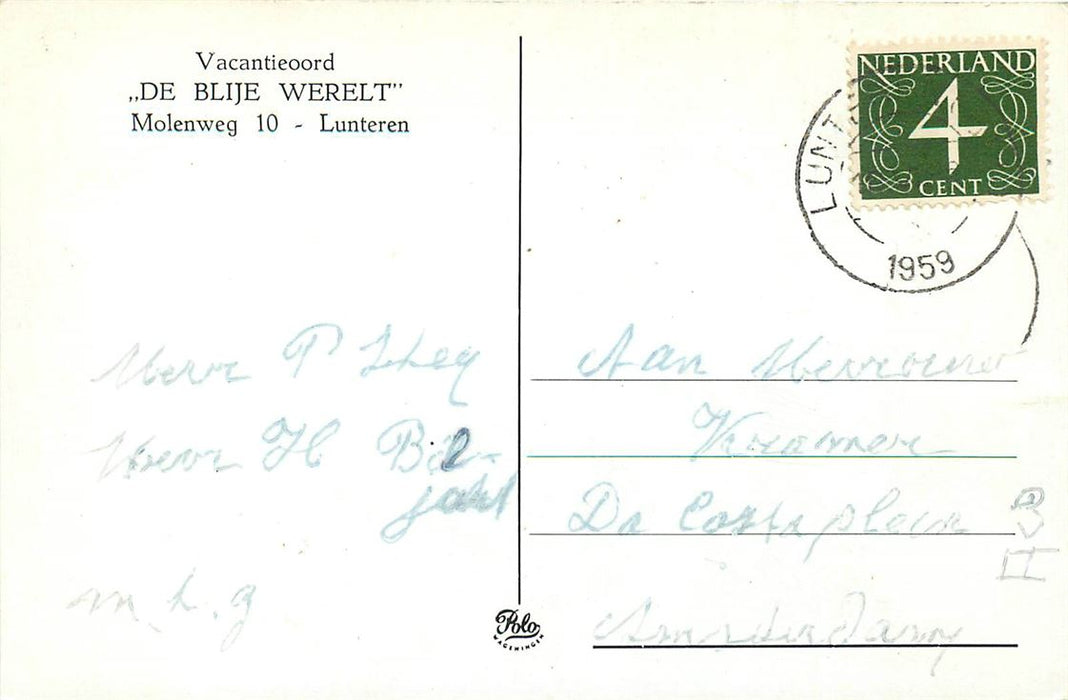 Vacantieoord
„DE BLIJE WERELT”
Molenweg 10 - Lunteren
NEDERLAND
4
CENT
LUNT
1959
P
H
m h. g
Aan Mevrouw
Kramer
Da Costaplein 3
II
Amsterdam
Polo
WAGENINGEN